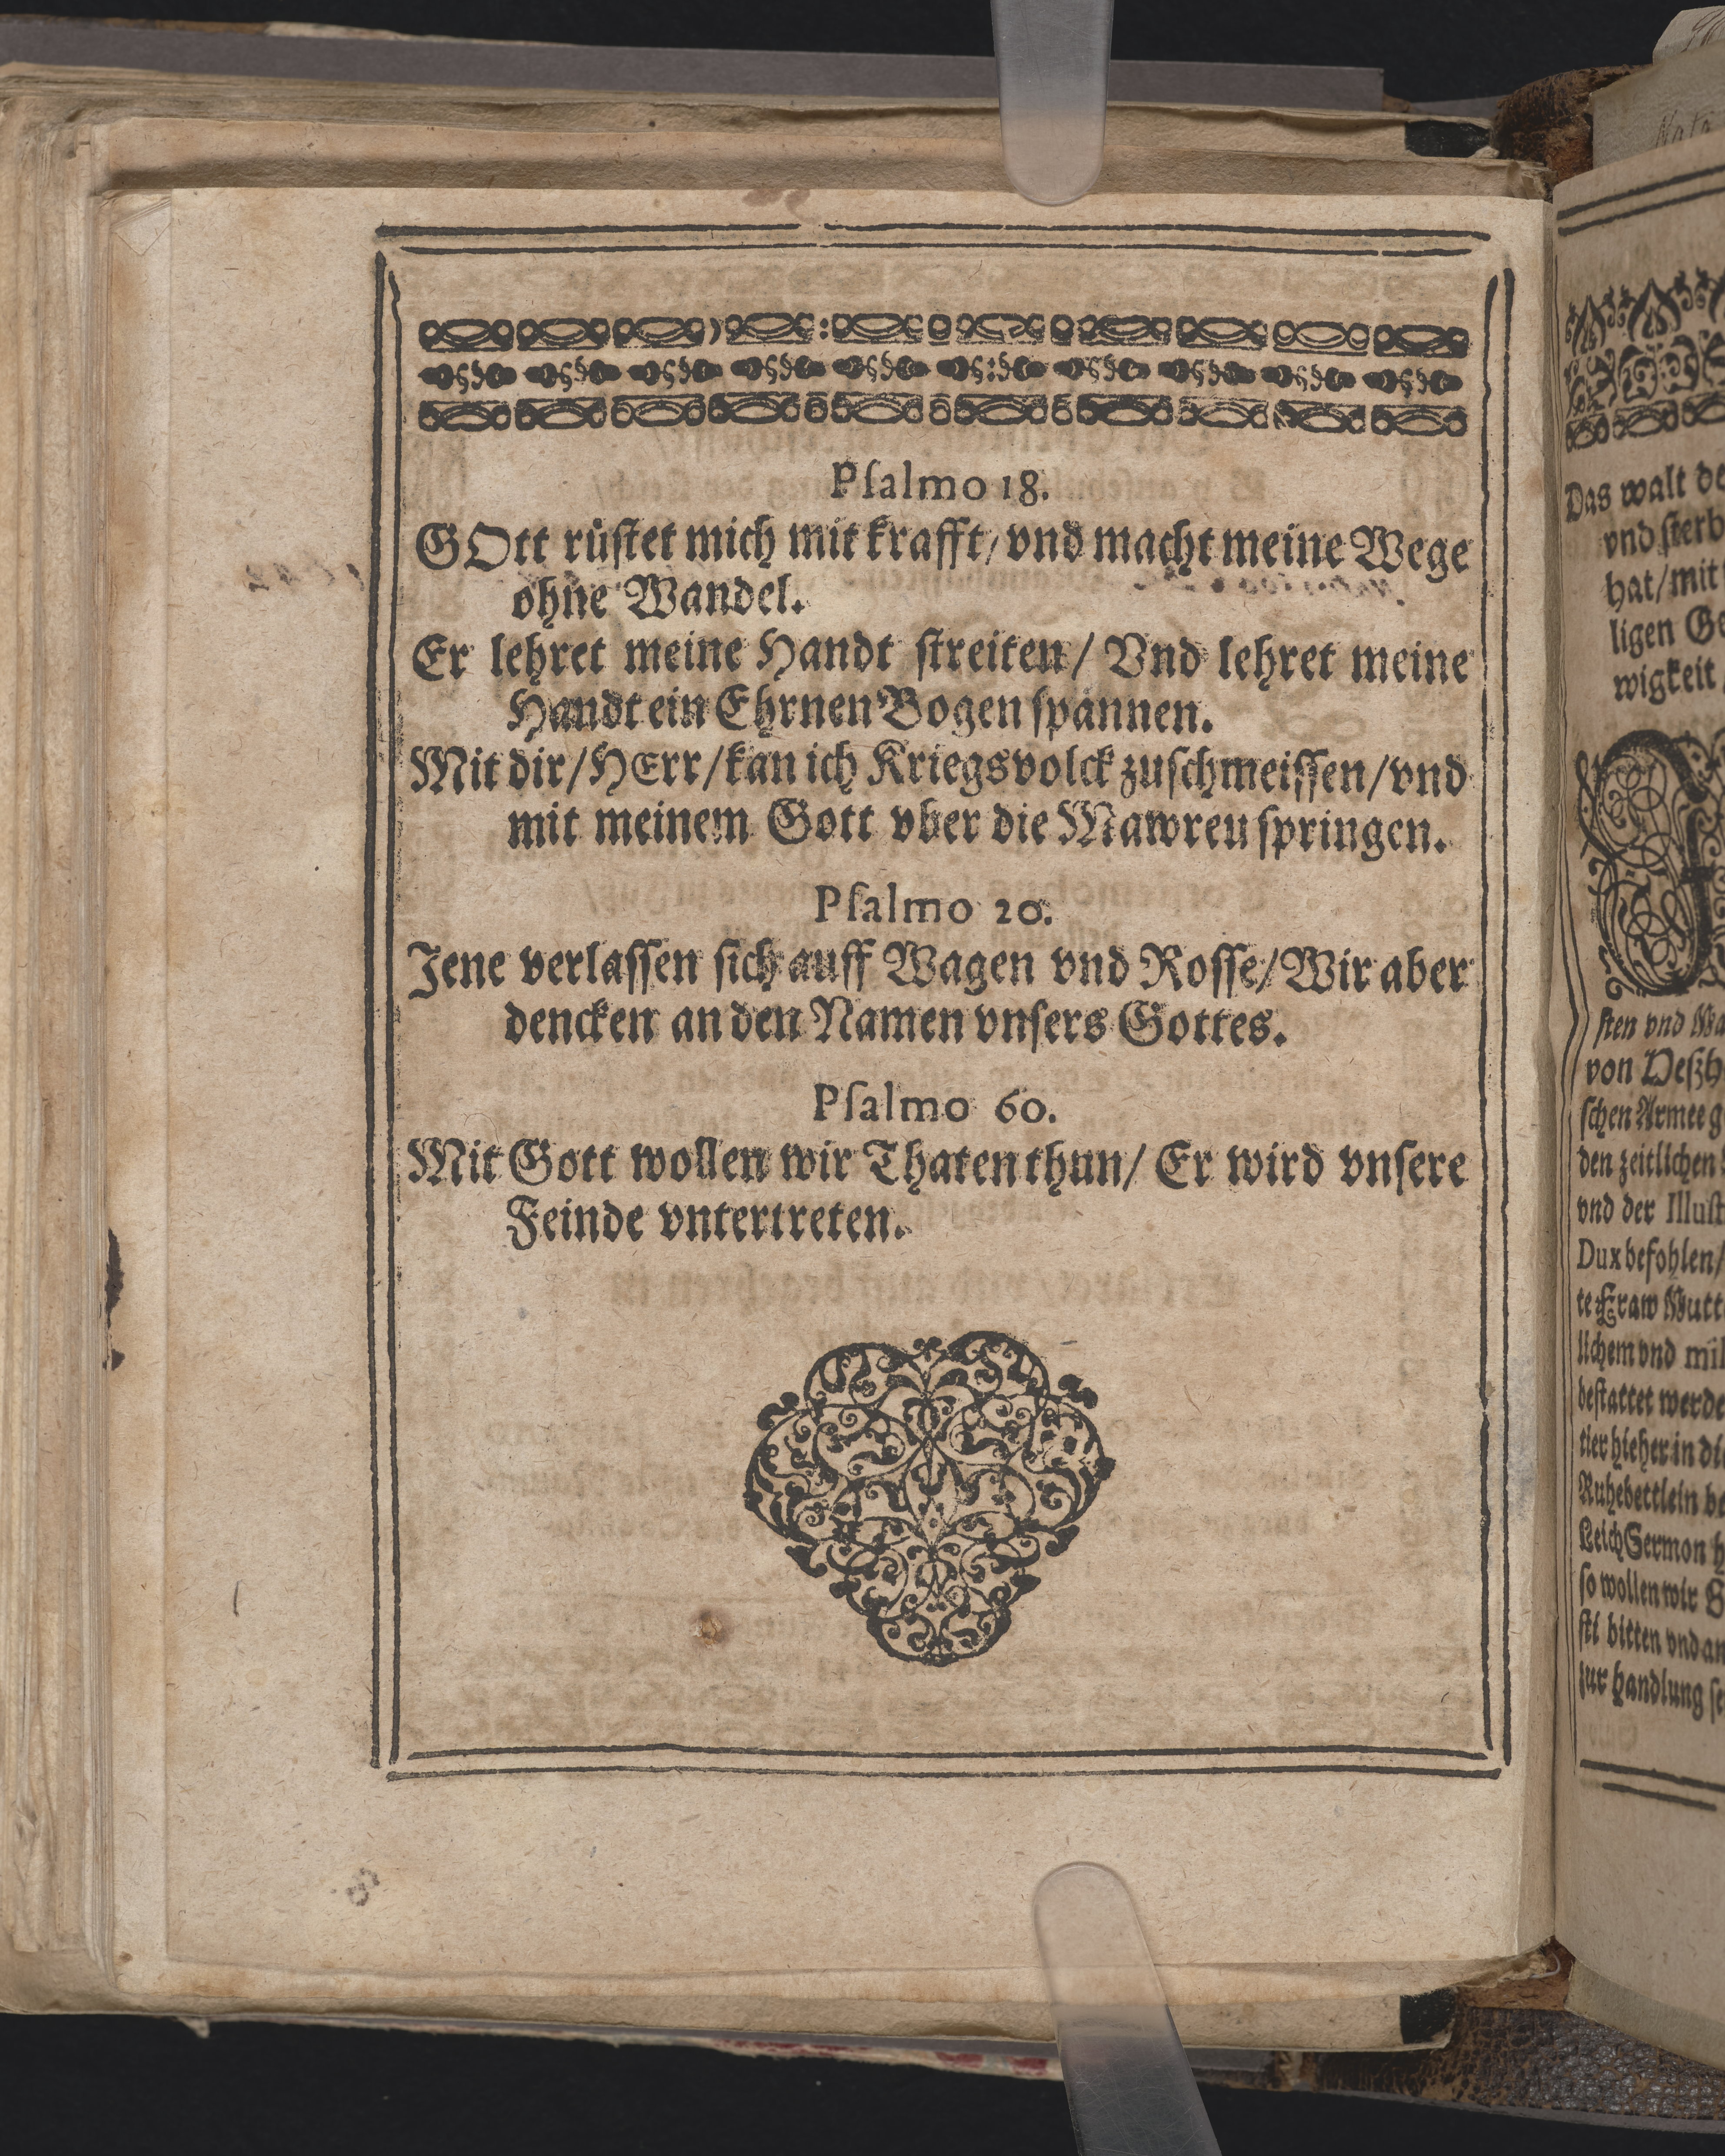 Psalmo 18.
GOtt rüstet mich mit krafft/ vnd macht meine Wege
ohne Wandel.
Er lehret meine Handt streiten/ Vnd lehret meine
Handt ein Ehrnen Bogen spannen.
Mit dir/HErr/kan ich Kriegsvolck zuschmeissen/vnd
mit meinem Gott vber die Mawren springen.
Psalmo 20.
Jene verlassen sich auff Wagen vnd Rosse/Wir aber
dencken an den Namen vnsers Gottes.
Psalmo 60.
Mit Gott wollen wir Thaten thun/ Er wird vnsere
Feinde vntertreten.
Das walt
vnd sterb
hat/mit
ligen
wigkeit
sten vnd
von
schen Armee
den zeitlichen
vnd der Illust
Dux befohlen/
te Fraw
lichem vnd mil
bestattet werde
tier hieher in
Ruhebettlein
Leich Sermon
so wollen wir
bitten vnd
zur handlung